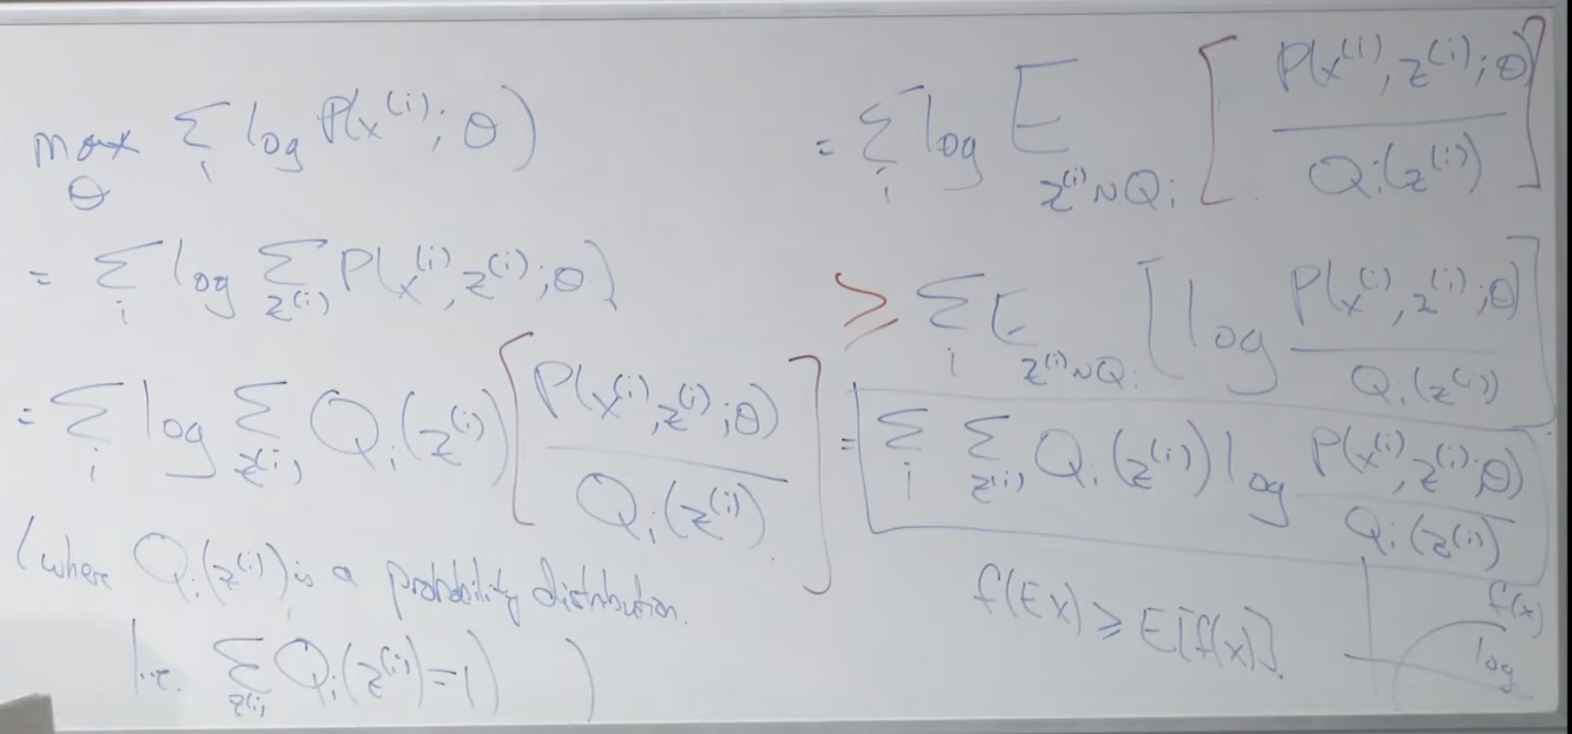 max_θ Σ_i log P(x^(i); θ)
= Σ_i log Σ_z^(i) P(x^(i), z^(i); θ)
= Σ_i log Σ_z^(i) Q_i(z^(i)) [ P(x^(i), z^(i); θ) / Q_i(z^(i)) ]
(where Q_i(z^(i)) is a probability distribution.
I.e. Σ_z^(i) Q_i(z^(i)) = 1 )
= Σ_i log E_z^(i)~Q_i [ P(x^(i), z^(i); θ) / Q_i(z^(i)) ]
≥ Σ_i E_z^(i)~Q_i [ log P(x^(i), z^(i); θ) / Q_i(z^(i)) ]
= Σ_i Σ_z^(i) Q_i(z^(i)) log P(x^(i), z^(i); θ) / Q_i(z^(i))
f(EX) ≥ E[f(X)].
f(x)
log